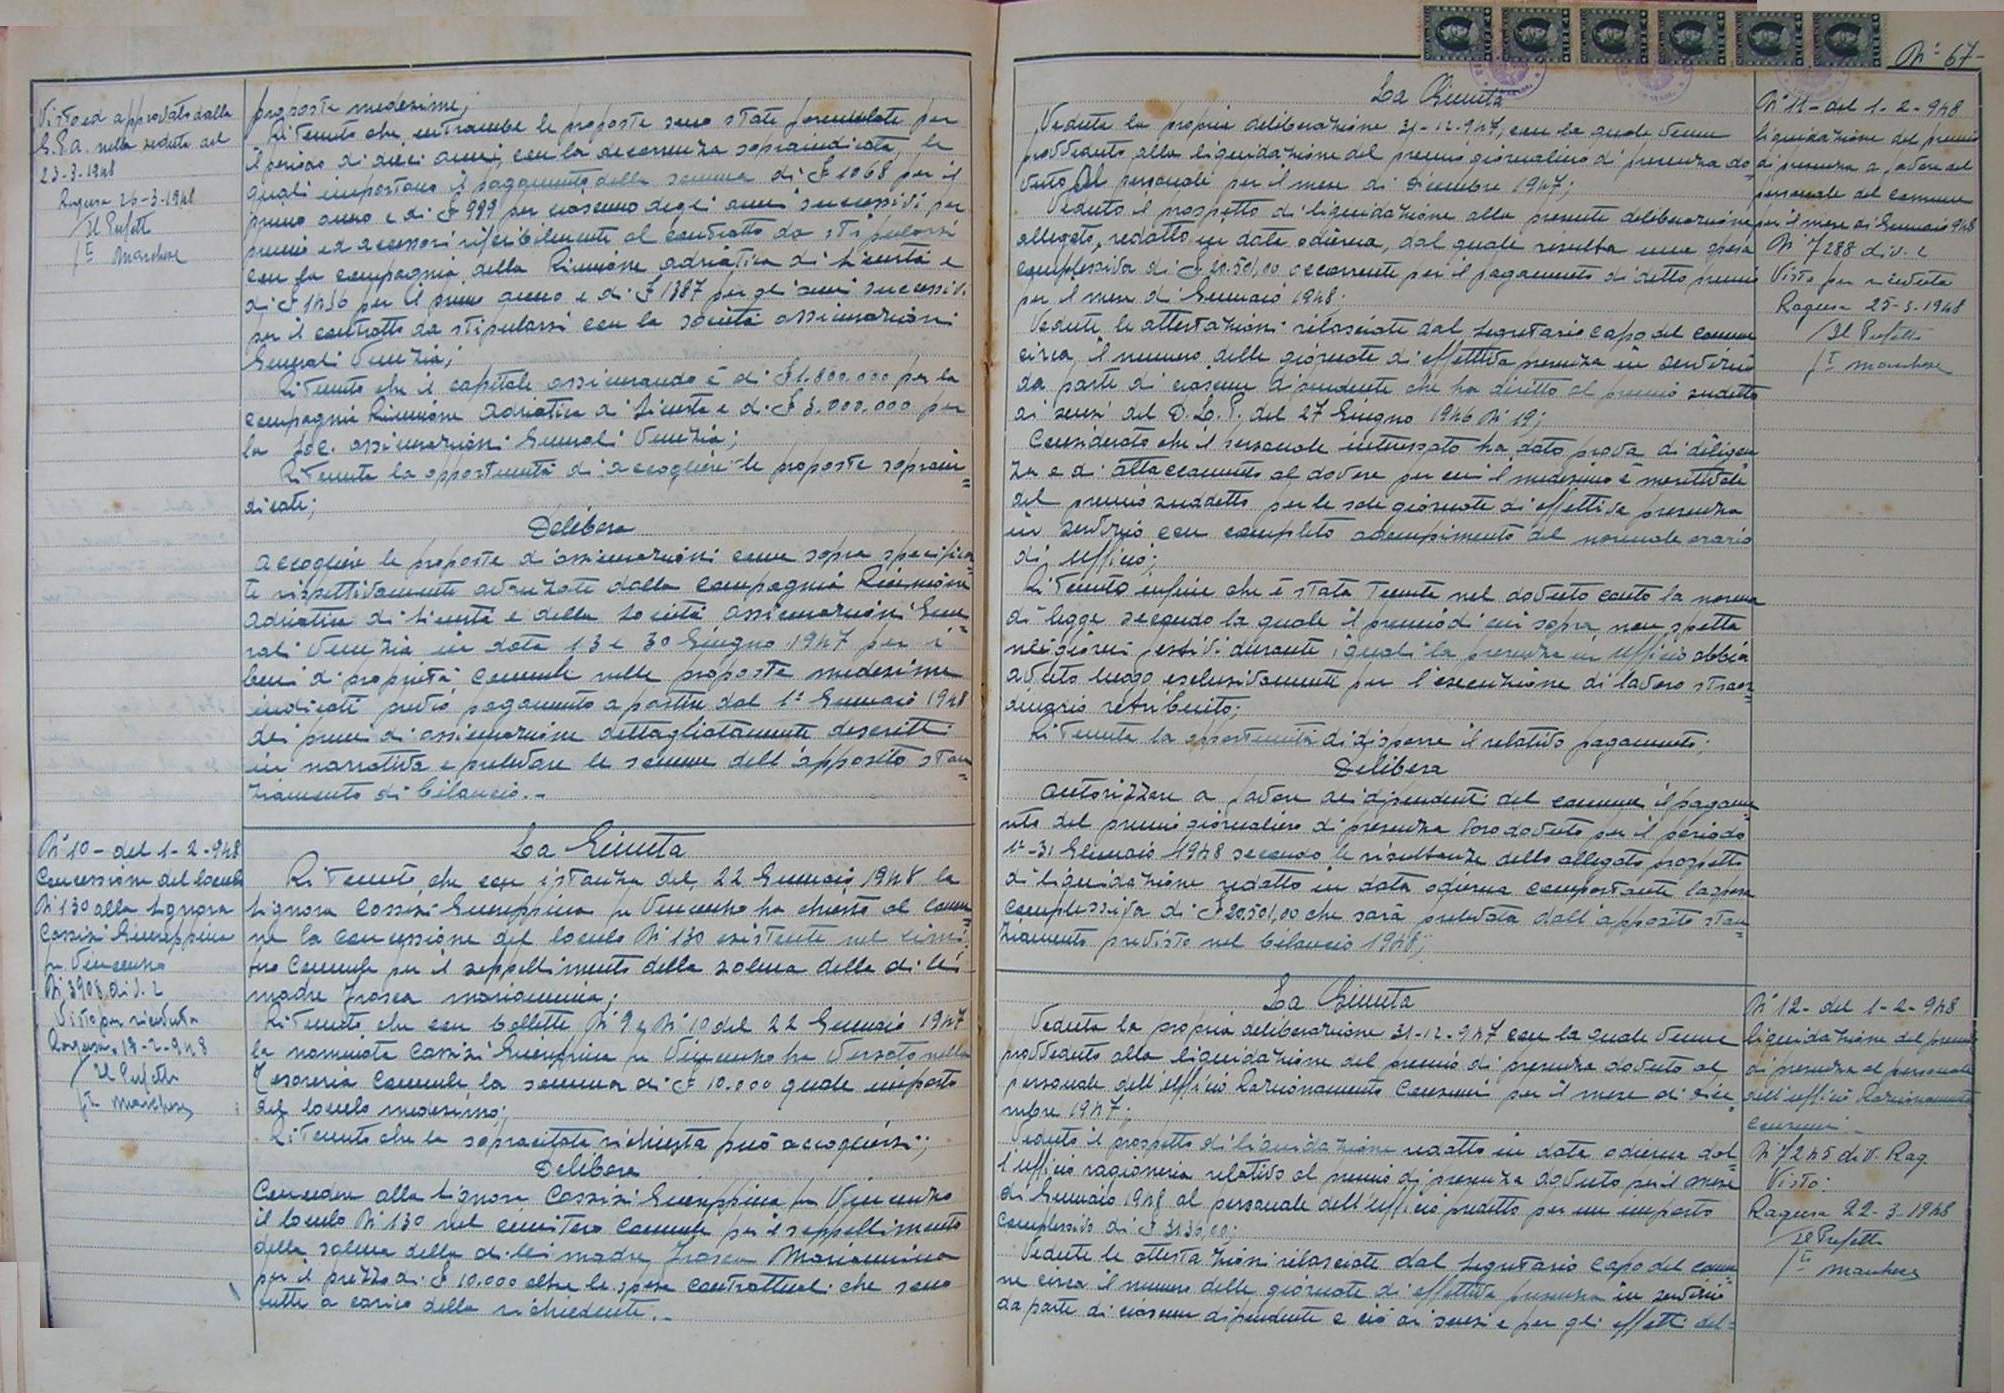 Visto ed approvato dalla
G.P.A. nella seduta del
23-3-1948
Ragusa 26-3-1948
Il Prefetto
fto Marchese
proposte medesime;
Ritenuto che entrambe le proposte sono state formulate per
il periodo di dieci anni, con la decorrenza sopraindicata, le
quali importano il pagamento della somma di £ 1068 per il
primo anno e di £ 999 per ciascuno degli anni successivi per
premi ed accessori riferibilmente al contratto da stipularsi
con la compagnia della Riunione Adriatica di Sicurtà e
di £ 1456 per il primo anno e di £ 1387 per gli anni successivi
per il contratto da stipularsi con la società assicurazioni
Generali Venezia;
Ritenuto che il capitale assicurando è di £ 1.800.000 per la
compagnia Riunione Adriatica di Sicurtà e di £ 3.000.000 per
la Soc. assicurazioni Generali Venezia;
Ritenuta la opportunità di accogliere le proposte soprain=
dicate;
Delibera
accogliere le proposte d'assicurazioni come sopra specifica=
te rispettivamente avanzate dalla Compagnia Riunione
Adriatica di Sicurtà e della Società assicurazioni Gene=
rali Venezia in data 13 e 30 Giugno 1947 per i
beni di proprietà Comunale nelle proposte medesime
indicati previo pagamento a partire dal 1° Gennaio 1948
dei premi di assicurazione dettagliatamente descritti
in narrativa e prelevare le somme dell'apposito stan=
ziamento di bilancio.-
N° 10 - del 1-2-948
Concessione del loculo
N° 130 alla Signora
Cassisi Giuseppina
fu Vincenzo
N° 3908 Div. 2
Visto per ricevuta
Ragusa, 18-2-948
Il Prefetto
fto Marchese
La Giunta
Ritenuto che con istanza del 22 Gennaio 1948 la
Signora Cassisi Giuseppina fu Vincenzo ha chiesto al Comu=
ne la concessione del loculo N° 130 esistente nel cimi=
tero Comunale per il seppellimento della salma della di lei
madre Frasca Mariannina;
Ritenuto che con bollette N° 9 e N° 10 del 22 Gennaio 1947
la nominata Cassisi Giuseppina fu Vincenzo ha versato nella
Tesoreria Comunale la somma di £ 10.000 quale importo
del loculo medesimo;
Ritenuto che la sopracitata richiesta può accogliersi;
Delibera
Concedere alla Signora Cassisi Giuseppina fu Vincenzo
il loculo N° 130 nel cimitero Comunale per il seppellimento
della salma della di lei madre Frasca Mariannina
per il prezzo di £ 10.000 oltre le spese contrattuali che sono
tutte a carico della richiedente.-
N° 67-
La Giunta
Veduta la propria deliberazione 31-12-947, con la quale venne
provveduto alla liquidazione del premio giornaliero di presenza do
vuto al personale per il mese di Dicembre 1947;
Veduto il prospetto di liquidazione alla presente deliberazione
allegato, redatto in data odierna, dal quale risulta una spesa
complessiva di £ 20.501,00 occorrente per il pagamento di detto premio
per il mese di Gennaio 1948;
Vedute le attestazioni rilasciate dal Segretario Capo del Comune
circa il numero delle giornate di effettiva presenza in servizio
da parte di ciascun dipendente che ha diritto al premio suddetto
ai sensi del D.L.P. del 27 Giugno 1946 N° 19;
Considerato che il personale interessato ha dato prova di diligen
za e di attaccamento al dovere per cui il medesimo è meritevole
del premio suddetto per le sole giornate di effettiva presenza
in servizio con completo adempimento del normale orario
di ufficio;
Ritenuto infine che è stata tenuta nel dovuto conto la norma
di legge secondo la quale il premio di cui sopra non spetta
nei giorni festivi durante i quali la presenza in ufficio abbia
avuto luogo esclusivamente per l'esecuzione di lavoro straor=
dinario retribuito;
Ritenuta la opportunità di disporre il relativo pagamento;
Delibera
Autorizzare a favore dei dipendenti del comune il pagame
nto del premio giornaliero di presenza loro dovuto per il periodo
1°-31 Gennaio 1948 secondo le risultanze dello allegato prospetto
di liquidazione redatto in data odierna comportante la spesa
complessiva di £ 20.501,00 che sarà prelevata dall'apposito stan=
ziamento previsto nel bilancio 1948;
N° 11 - del 1-2-948
liquidazione del premio
di presenza a favore del
personale del comune
per il mese di Gennaio 948
N° 7288 div. 2
Visto per ricevuta
Ragusa 25-3-1948
Il Prefetto
fto Marchese
La Giunta
Veduta la propria deliberazione 31-12-947 con la quale venne
provveduto alla liquidazione del premio di presenza dovuto al
personale dell'ufficio Razionamento Consumi per il mese di Dice=
mbre 1947;
Veduto il prospetto di liquidazione redatto in data odierna dal=
l'ufficio ragioneria relativo al premio di presenza dovuto per il mese
di Gennaio 1948 al personale dell'ufficio predetto per un importo
complessivo di £ 3136,00;
Vedute le attestazioni rilasciate dal Segretario Capo del Comu=
ne circa il numero delle giornate di effettiva presenza in servizio
da parte di ciascun dipendente e ciò ai sensi e per gli effetti del=
N° 12 - del 1-2-948
liquidazione del premio
di presenza al personale
dell'ufficio Razionamento
Consumi.-
N° 7245 div. Rag.
Visto:
Ragusa 22-3-1948
Il Prefetto
fto Marchese